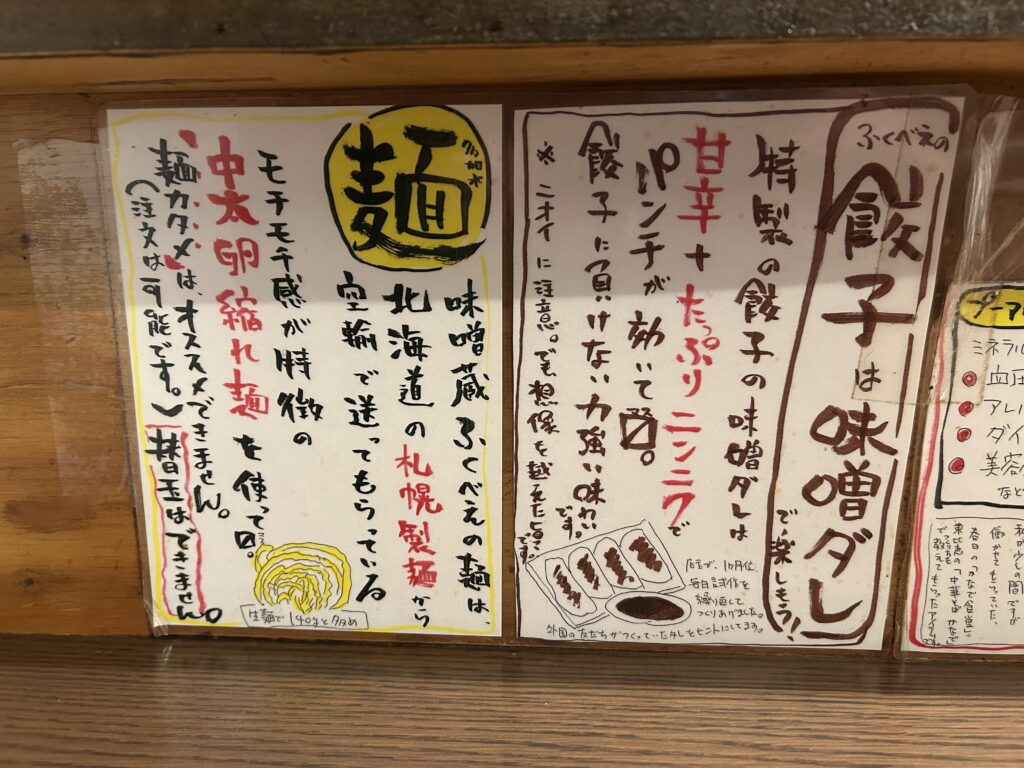 ふくべえの
餃子は味噌ダレ
で楽しもう!
特製の餃子の味噌ダレは
甘辛+たっぷりニンニクで
パンチが効いて〼。
餃子に負けない力強い味わい
です。
※ニオイに注意。でも想像を越えた旨さです
店主が、1ヶ月位、
毎日試作を
繰り返して
つくりあげました。
外国の友だちがつくっていたタレをヒントにしてます。
麺
味噌蔵ふくべえの麺は、
北海道の札幌製麺から
空輸で送ってもらっている
モチモチ感が特徴の
中太卵縮れ麺を使って〼。
麺カタメは、オススメできません。
(注文は可能です。)替玉は、できません。
生麺で140gと多め
プーアル
ミネラル
血圧
アレル
ダイ
美容
など
働かせてもらっていた、
春日の「かなで食堂」
東比恵の「中華そばかなで」
で
教えてもらったアイテムです。